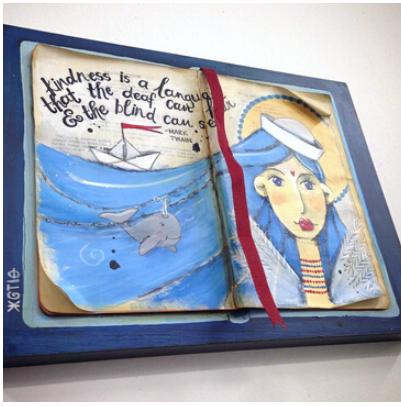 kindness is a language
that the deaf can hear
& the blind can see
-MARK
TWAIN
ЖGTIS